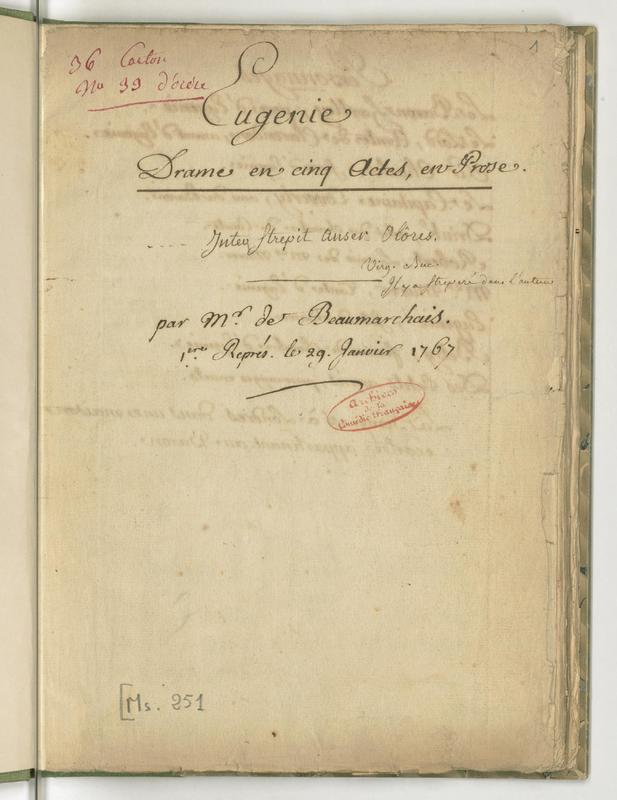 1
36 Carton
No 39 d'ordre
Eugenie
Drame en cinq Actes, en Prose.
.... Inter strepit anser Olôres.
Virg. Buc.
Il y a strepere dans l'auteur
par Mr. de Beaumarchais.
1ere Représ. le 29. Janvier 1767
Archives
de la
Comédie Française
[Ms. 251